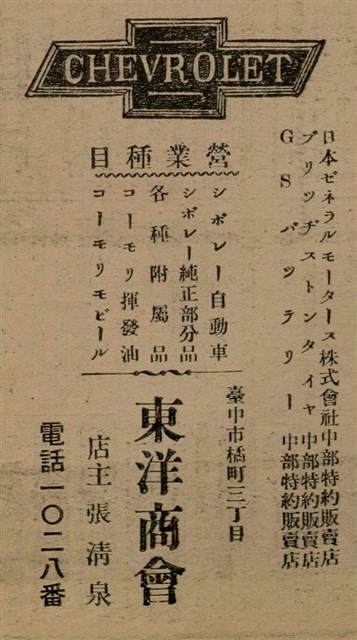 CHEVROLET
日本ゼネラルモータース株式會社中部特約販賣店
ブリツヂストンタイヤ中部特約販賣店
GSバツテリー中部特約販賣店
營業種目
シボレー自動車
シボレー純正部分品
各種附屬品
コーモリ揮發油
コーモリモビール
臺中市橘町三丁目
東洋商會
店主張淸泉
電話一〇二八番